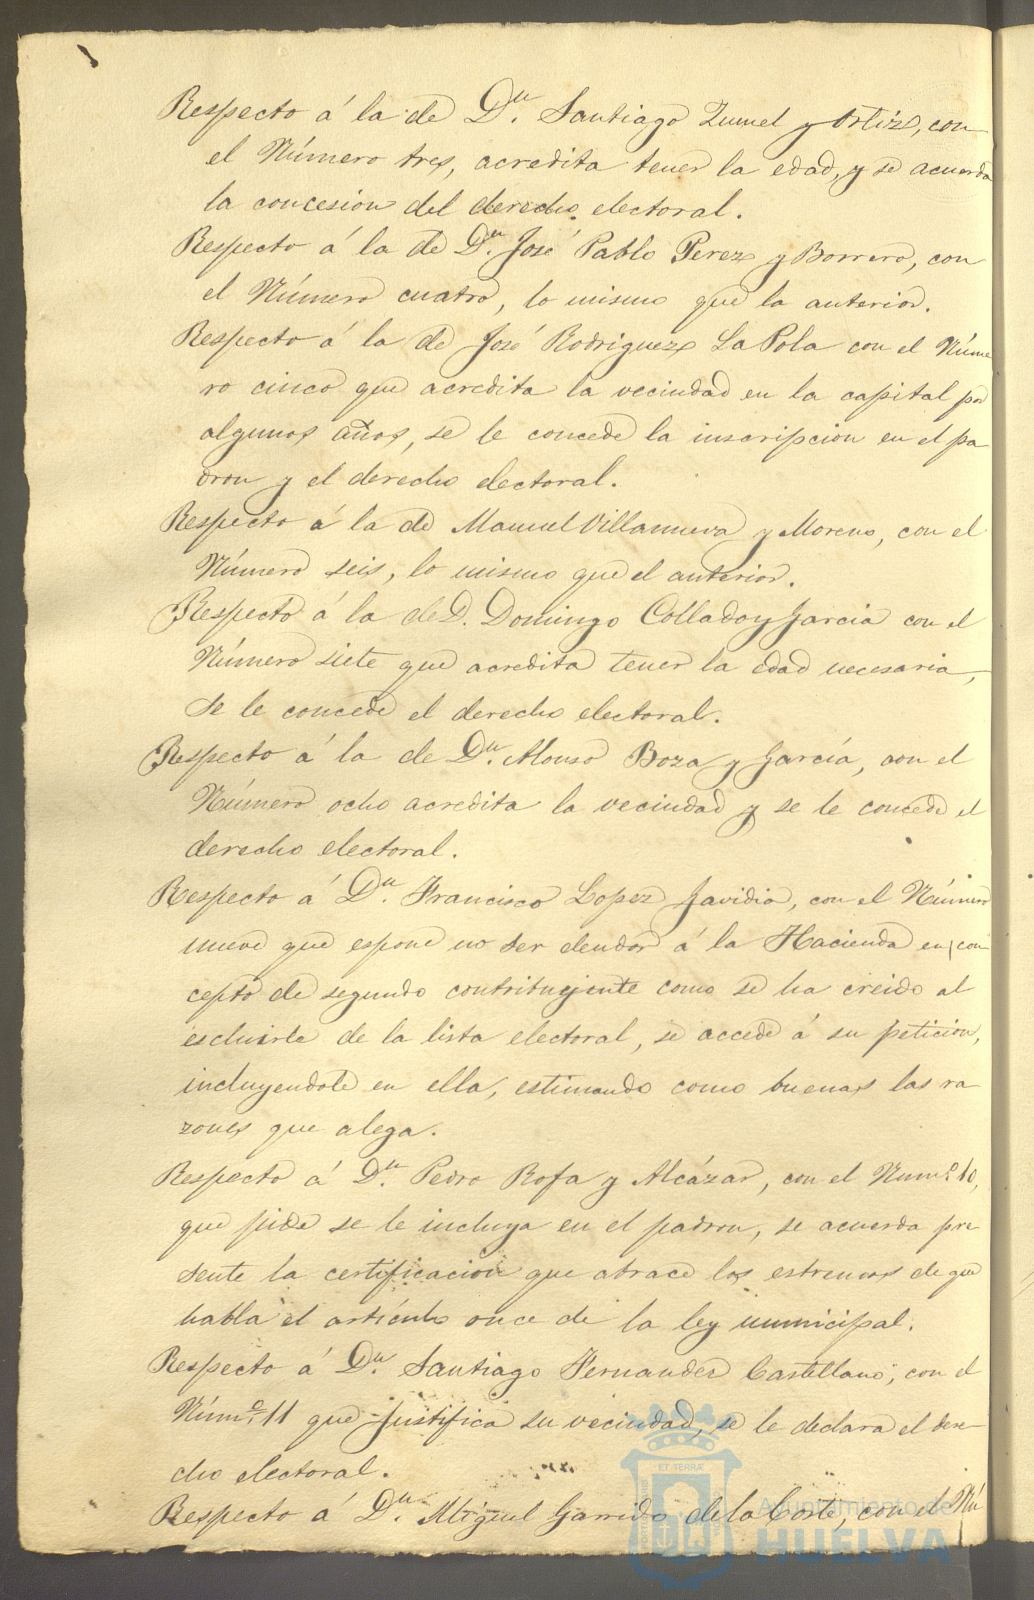 Respecto á la de Dn. Santiago Zumel y Ortiz, con
el Número tres, acredita tener la edad, y se acuerda
la concesion del derecho electoral.
Respecto á la de Dn. José Pablo Perez y Borrero, con
el Número cuatro, lo mismo que la anterior.
Respecto á la de José Rodriguez La Pola con el Núme
ro cinco que acredita la vecindad en la capital por
algunos años, se le concede la inscripcion en el pa
dron y el derecho electoral.
Respecto á la de Manuel Villanueva y Moreno, con el
Número seis, lo mismo que el anterior.
Respecto á la de D. Domingo Collado y Garcia con el
Número siete que acredita tener la edad necesaria,
se le concede el derecho electoral.
Respecto á la de Dn. Alonso Boza y García, con el
Número ocho acredita la vecindad y se le concede el
derecho electoral.
Respecto á Dn. Francisco Lopez, con el Número
nueve que espone no ser deudor á la Hacienda en con
cepto de segundo contribuyente como se ha creido al
escluirle de la lista electoral, se accede á su peticion,
incluyendole en ella, estimando como buenas las ra
zones que alega.
Respecto á Dn. Pedro Rofa y Alcázar, con el Numº. 10,
que pide se le incluya en el padron, se acuerda pre
sente la certificacion que abrace los estremos de que
habla el artículo once de la ley municipal.
Respecto á Dn. Santiago Fernandez Castellano, con el
Númº. 11 que justifica su vecindad, se le declara el dere-
cho electoral.
Respecto á Dn. Miguel Garrido de la Corte, con el Nú
ET TERRA
Ayuntamiento de
HUELVA